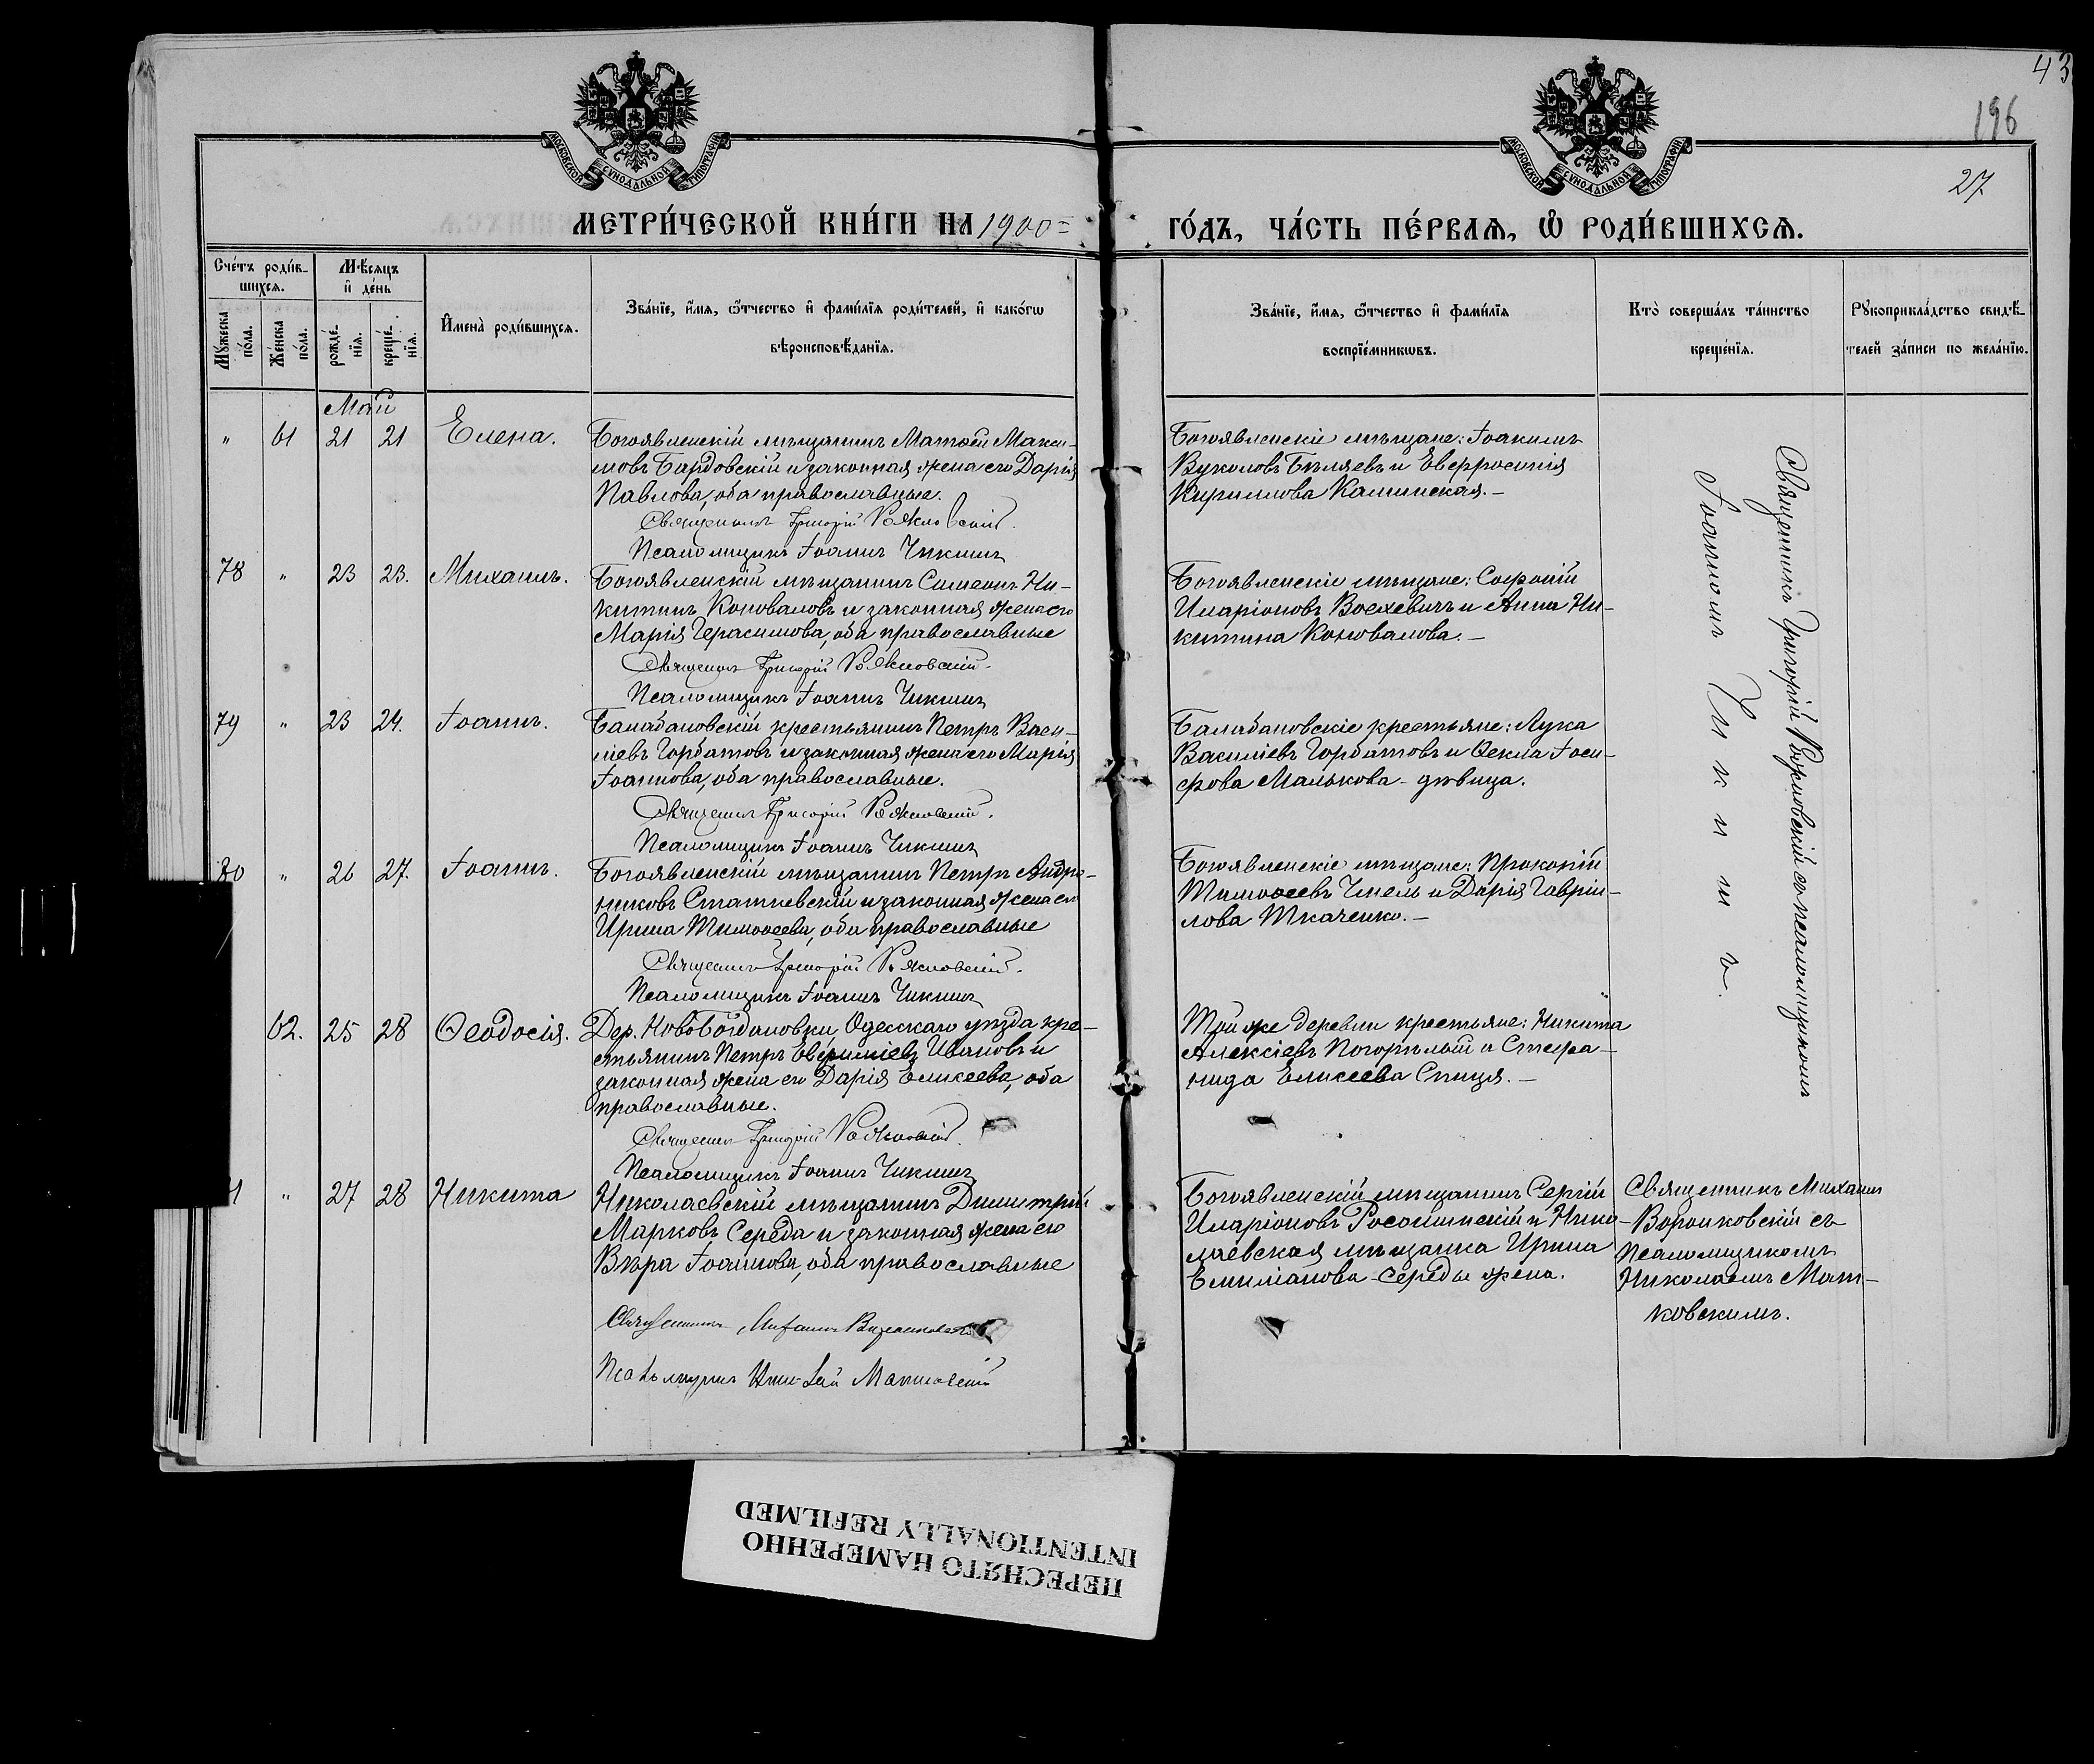 43
196
27
МОСКОВСКОЙ СѴНОДАЛЬНОЙ ТИПОГРАФІИ
МОСКОВСКОЙ СѴНОДАЛЬНОЙ ТИПОГРАФІИ
МЕТРИ́ЧЕСКОЙ КНИ́ГИ НА 1900 ГО́ДЪ, ЧА́СТЬ ПЕ́РВАѦ, Ѡ҆ РОДИ́ВШИХСѦ.
Сче́тъ роди́в-
шихсѧ.
Мꙋ́жеска по́ла.
Же́нска по́ла.
Мѣ́сѧцъ
и҆ де́нь
рожде́-
нїѧ.
креще́-
нїѧ.
И҆мена̀ роди́вшихсѧ.
Зва́нїе, и҆́мѧ, ѻ҆́тчество и҆ фами́лїѧ роди́телей, и҆ како́гѡ
вѣроисповѣ́данїѧ.
Зва́нїе, и҆́мѧ, ѻ҆́тчество и҆ фами́лїѧ
воспрїе́мникѡвъ.
Кто̀ соверша́лъ та́инство
креще́нїѧ.
Рꙋкоприкла́дство свидѣ́-
телей за́писи по жела́нїю.
Май
" 61 21 21 Елена.
Богоявленскій мѣщанинъ Матѳей Макси-
мовъ Бардовскій и законная жена его Дарія
Павлова, оба православные.
Священникъ Григорій
Псаломщикъ Іоаннъ Чикинъ
Богоявленскіе мѣщане: Іоакимъ
Вуколовъ Бѣляевъ и Евфросинія
Кириллова Калинская.–
78 " 23 23. Михаилъ.
Богоявленскій мѣщанинъ Симеонъ Ни-
китинъ Коноваловъ и законная жена его
Марія Герасимова, оба православные
Священникъ Григорій
Псаломщикъ Іоаннъ Чикинъ
Богоявленскіе мѣщане: Софоній
Иларіоновъ Воехевичъ и Анна Ни-
китина Коновалова.–
79 " 23 24. Іоаннъ.
Балабановскій крестьянинъ Петръ Васи-
ліевъ Горбатовъ и законная жена его Марія
Іоаннова, оба православные.
Священникъ Григорій
Псаломщикъ Іоаннъ Чикинъ
Балабановскіе крестьяне: Лука
Василіевъ Горбатовъ и Ѳекла Іоси-
фова Малькова - дѣвица.
80 " 26 27. Іоаннъ.
Богоявленскій мѣщанинъ Петръ Андро-
никовъ Статкевскій и законная жена его
Ирина Тимоѳеева, оба православные
Священникъ Григорій
Псаломщикъ Іоаннъ Чикинъ
Богоявленскіе мѣщане: Прокопій
Тимоѳеевъ Чмель и Дарія Гаврии-
лова Ткаченко.–
62. 25 28 Ѳеодосія.
Дер. Новобогдановки, Одесскаго уѣзда кре-
стьянинъ Петръ Ивановъ и
законная жена его Дарія Еликеева, оба
православные.
Священникъ Григорій
Псаломщикъ Іоаннъ Чикинъ
Той же деревни крестьяне: Никита
Алексіевъ Погорѣлый и Стефа-
нида Елисеева Спиця.–
1 " 27 28 Никита
Николаевскій мѣщанинъ Димитрій
Марковъ Середа и законная жена его
Вѣра Іоаннова, оба православные
Священникъ Михаилъ Воронковскій
Псаломщикъ Николай Матковскій
Богоявленскій мѣщанинъ Сергій
Иларіоновъ Росолинскій и Нико-
лаевская мѣщанка Ирина
Емиліанова Середы жена.
Священникъ Михаилъ
Воронковскій съ
псаломщикомъ
Николаемъ Мат-
ковскимъ.
Священникъ Григорій съ псаломщикомъ
Іоанномъ Чикинъ.
ПЕРЕСНЯТО НАМЕРЕННО
INTENTIONALLY REFILMED